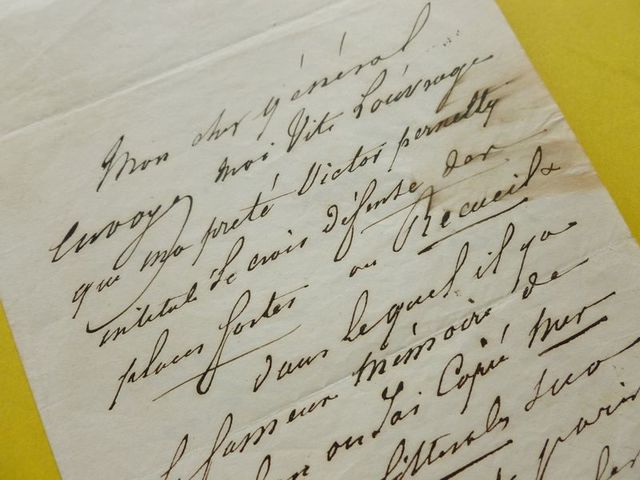 Mon cher général
Envoyez moi Vite L'ouvrage
que m'a preté Victor pernetty
intitulé Je crois défense des
places fortes ou Recueil &
dans lequel il y a
le fameux mémoire de
ou J'ai Copié mes
littorales sur
de paris